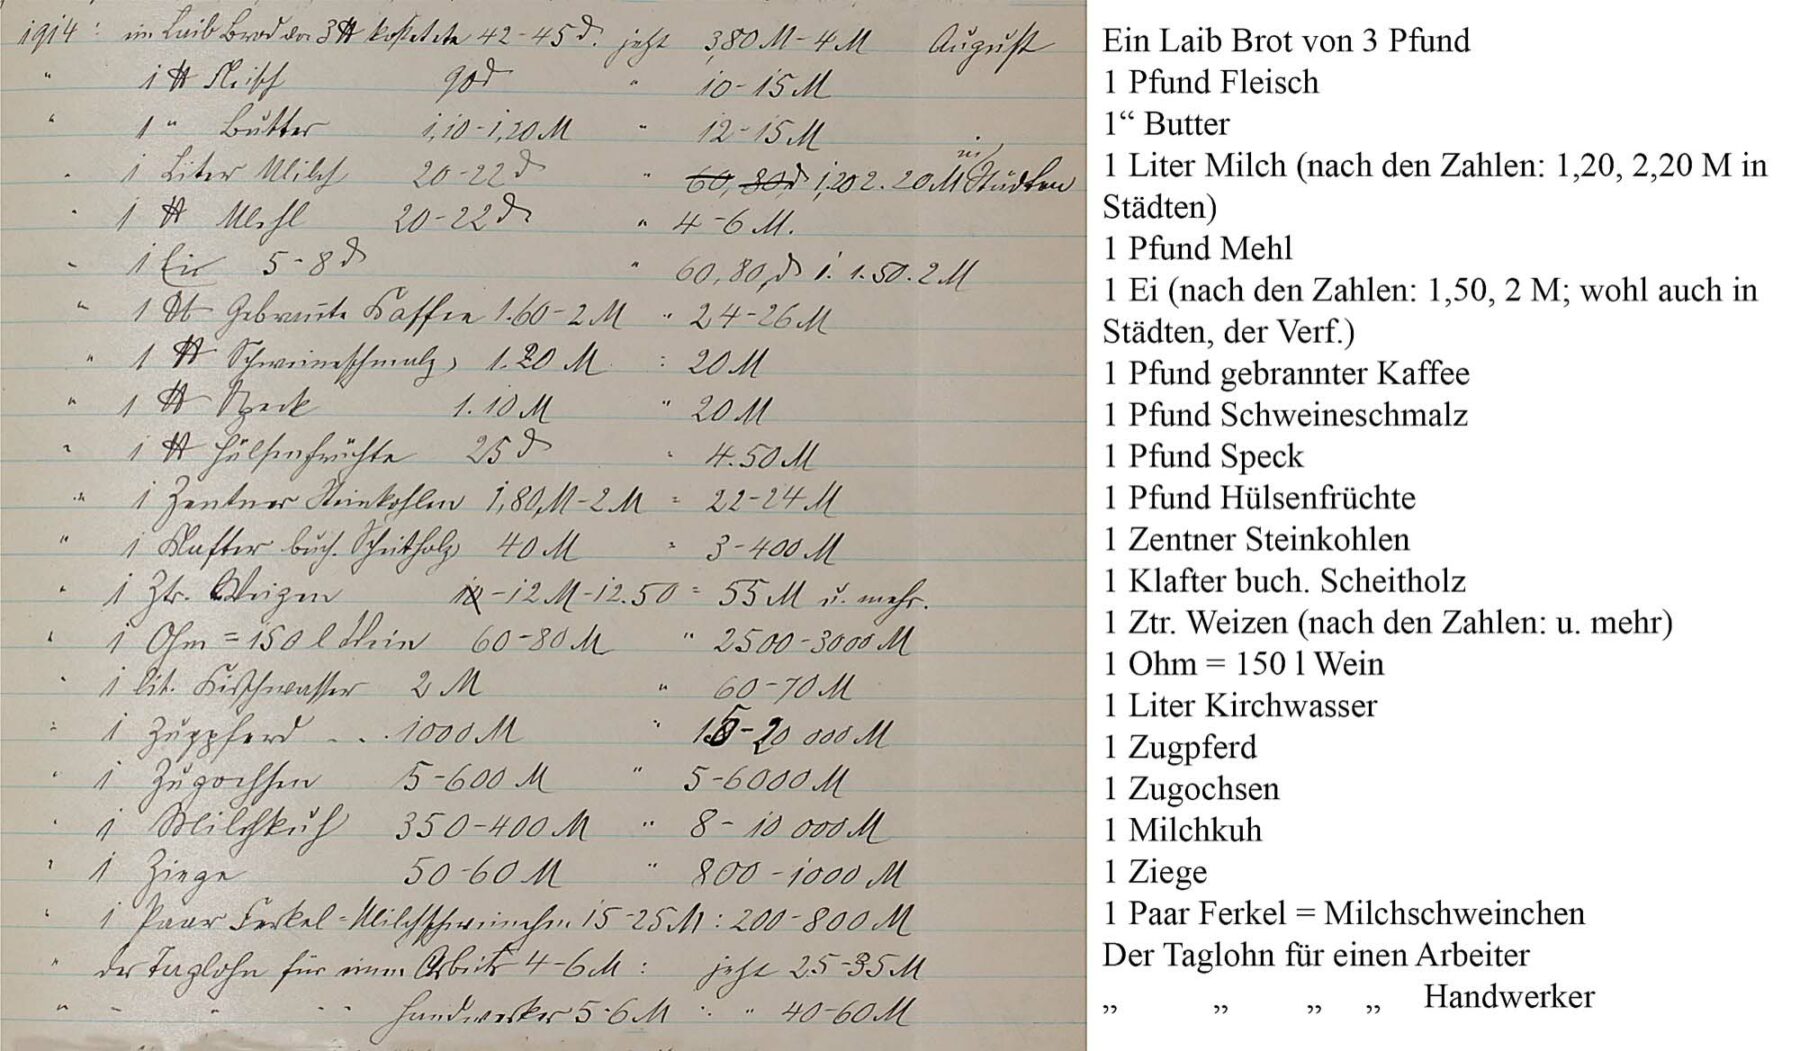 1914: ein Laib Brod von 3 ℔ kostete 42-45 ₰. jetzt 3,80 M-4 M August
" 1 ℔ Fleisch 90 ₰ " 10-15 M
" 1 " Butter 1,10-1,20 M " 12-15 M
" 1 Liter Milch 20-22 ₰ " 60, 80 ₰ 1,20 2.20 M in Städten
" 1 ℔ Mehl 20-22 ₰ " 4-6 M.
" 1 Ei 5-8 ₰ " 60, 80, ₰ 1. 1.50. 2 M
" 1 ℔ Gebrannte Kaffee 1.60-2 M " 24-26 M
" 1 ℔ Schweineschmalz, 1.20 M : 20 M
" 1 ℔ Speck 1.10 M " 20 M
" 1 ℔ Hülsenfrüchte 25 ₰ " 4.50 M
" 1 Zentner Steinkohlen 1,80 M-2 M = 22-24 M
" 1 Klafter buch. Scheitholz 40 M = 3-400 M
" 1 Ztr. Weizen 10-12 M-12.50 = 55 M u. mehr.
" 1 Ohm = 150 l Wein 60-80 M " 2500-3000 M
" 1 lit. Kirschwasser 2 M " 60-70 M
" 1 Zugpferd - . . 1000 M " 15-20 000 M
" 1 Zugochsen 5-600 M " 5-6000 M
" 1 Milchkuh 350-400 M " 8-10 000 M
" 1 Ziege 50-60 M " 800-1000 M
" 1 Paar Ferkel=Milchschweinchen 15-25 M : 200-800 M
" der Taglohn für einen Arbeiter 4-6 M : jetzt 25-35 M
" " " " Handwerker 5-6 M : " 40-60 M
Ein Laib Brot von 3 Pfund
1 Pfund Fleisch
1“ Butter
1 Liter Milch (nach den Zahlen: 1,20, 2,20 M in
Städten)
1 Pfund Mehl
1 Ei (nach den Zahlen: 1,50, 2 M; wohl auch in
Städten, der Verf.)
1 Pfund gebrannter Kaffee
1 Pfund Schweineschmalz
1 Pfund Speck
1 Pfund Hülsenfrüchte
1 Zentner Steinkohlen
1 Klafter buch. Scheitholz
1 Ztr. Weizen (nach den Zahlen: u. mehr)
1 Ohm = 150 l Wein
1 Liter Kirchwasser
1 Zugpferd
1 Zugochsen
1 Milchkuh
1 Ziege
1 Paar Ferkel = Milchschweinchen
Der Taglohn für einen Arbeiter
„ „ „ „ Handwerker